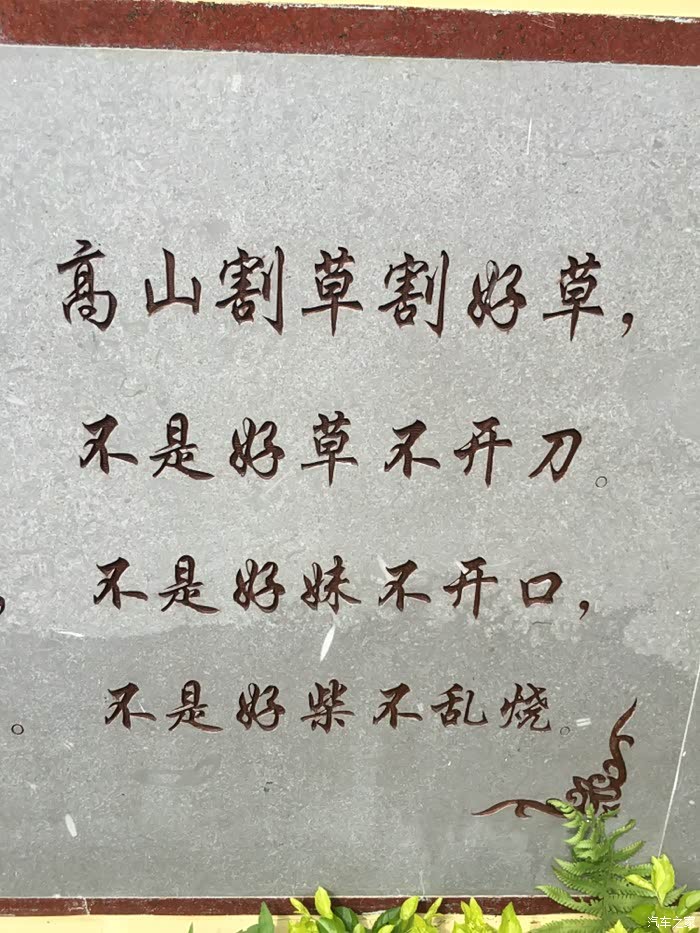 高山割草割好草，
不是好草不开刀。
，不是好妹不开口，
。不是好柴不乱烧。
汽车之家